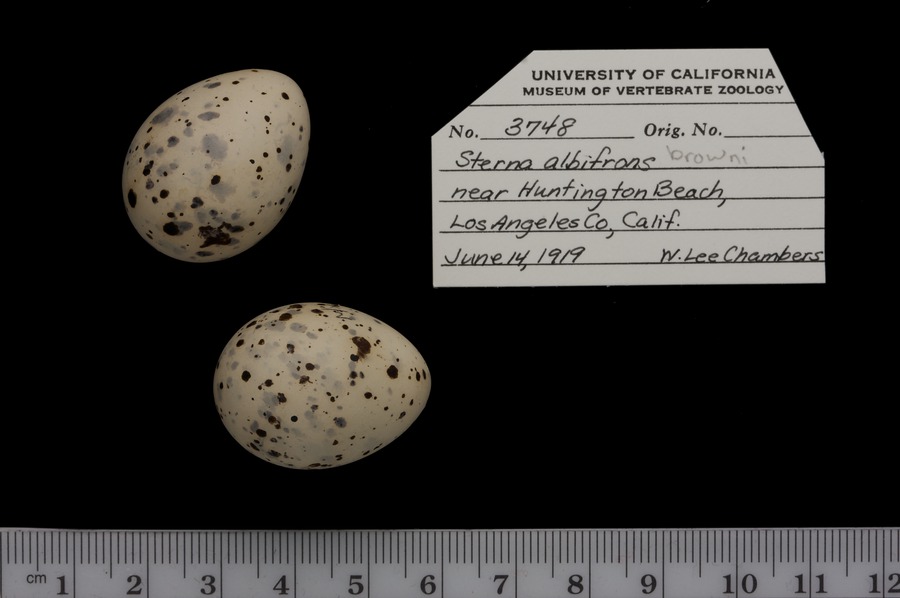 UNIVERSITY OF CALIFORNIA
MUSEUM OF VERTEBRATE ZOOLOGY
No. 3748 Orig. No.
Sterna albifrons browni
near Huntington Beach,
Los Angeles Co, Calif.
June 14, 1919 W. Lee Chambers
cm 1 2 3 4 5 6 7 8 9 10 11 12